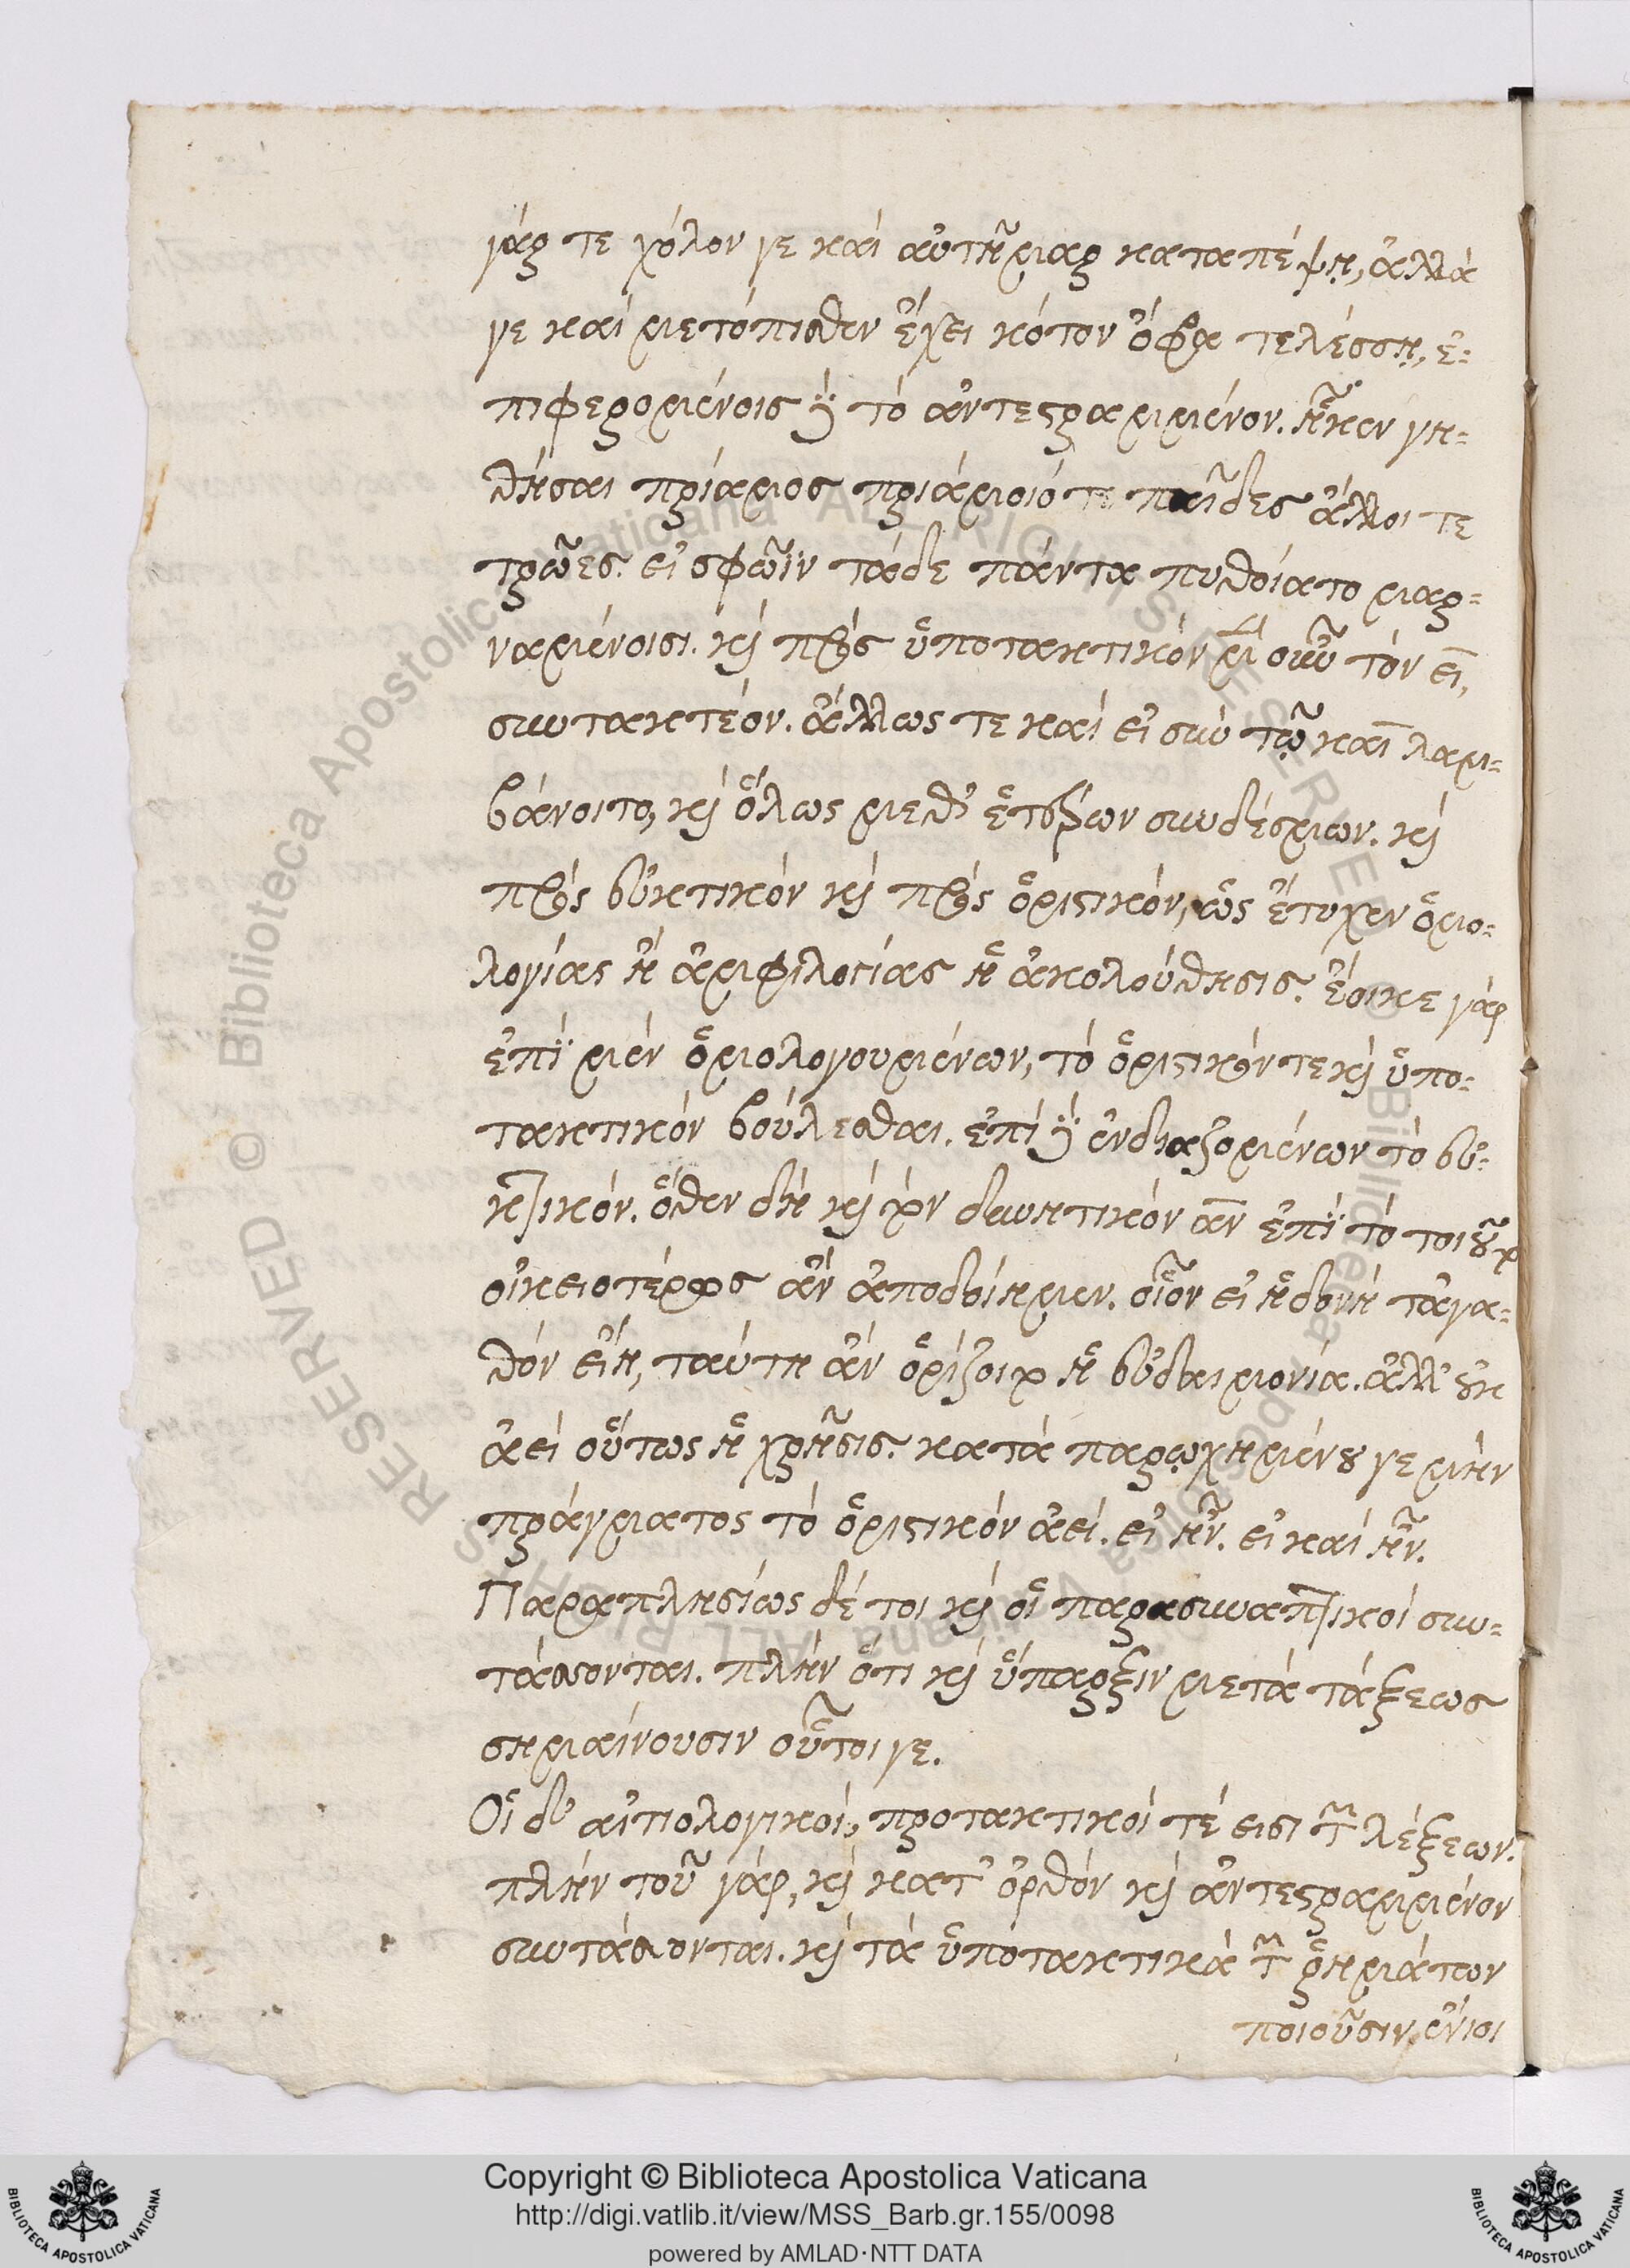 γάρ τε χόλον γε καί αὐτῆμαρ καταπέψῃ, ἀλλά
γε καί μετόπισθεν ἔχει κότον ὄφρα τελέσσῃ, ἐ-
πιφερομένοις δὲ τό ἀντεστραμμένον. ἦ κεν γη-
θήσαι πρίαμος πριάμοιό τε παῖδες ἄλλοι τε
τρῶες. εἰ σφῶϊν τάδε πάντα πυθοίατο μαρ-
ναμένοισι. καὶ πρός ὑποτακτικόν μὴ σὺν τόν εἰ,
συντακτέον. ἄλλως τε καί εἰ σύν τῷ καὶ λαμ-
βάνοιτο, καὶ ὅλως μεθ' ἑτέρων συνδέσμων. καὶ
πρός εὐκτικόν καὶ πρός ὁριστικόν, ὡς ἔτυχεν ὁμο-
λογίας ἤ ἀμφιλογίας ἡ ἀκολούθησις. ἔοικε γάρ
ἐπί μέν ὁμολογουμένων, τό ὁριστικόν τε καὶ ὑπο-
τακτικόν βούλεσθαι. ἐπί δὲ ἐνδιαζομένων τό εὐ-
κτικόν. ὅθεν δή καὶ τὸν δυνητικόν ἂν ἐπί τό τοιοῦτο
οἰκειοτέρως ἄν ἀποδοίημεν. οἷον εἰ ἡδονή τἀγα-
θόν εἴη, ταύτῃ ἄν ὁρίζοιτο ἡ εὐδαιμονία. ἀλλ' οὐκ
ἀεί οὕτως ἡ χρῆσις. κατά παρῳχημένου γε μήν
πράγματος τό ὁριστικόν ἀεί. εἰ ἦν. εἰ καί ἦν.
Παραπλησίως δέ τοι καὶ οἱ παρασυναπτικοί συν-
τάσσονται. πλήν ὅτι καὶ ὕπαρξιν μετά τάξεως
σημαίνουσιν οὗτοι γε.
Οἱ δ' αἰτιολογικοί, προτακτικοί τέ εισι τῶν λέξεων.
πλήν τοῦ γάρ, καὶ κατ' ὀρθόν καὶ ἀντεστραμμένον
συντάσσονται. καὶ τά ὑποτακτικά τῶν ῥημάτων
ποιοῦσιν ἔνιοι
Copyright © Biblioteca Apostolica Vaticana
http://digi.vatlib.it/view/MSS_Barb.gr.155/0098
powered by AMLAD·NTT DATA